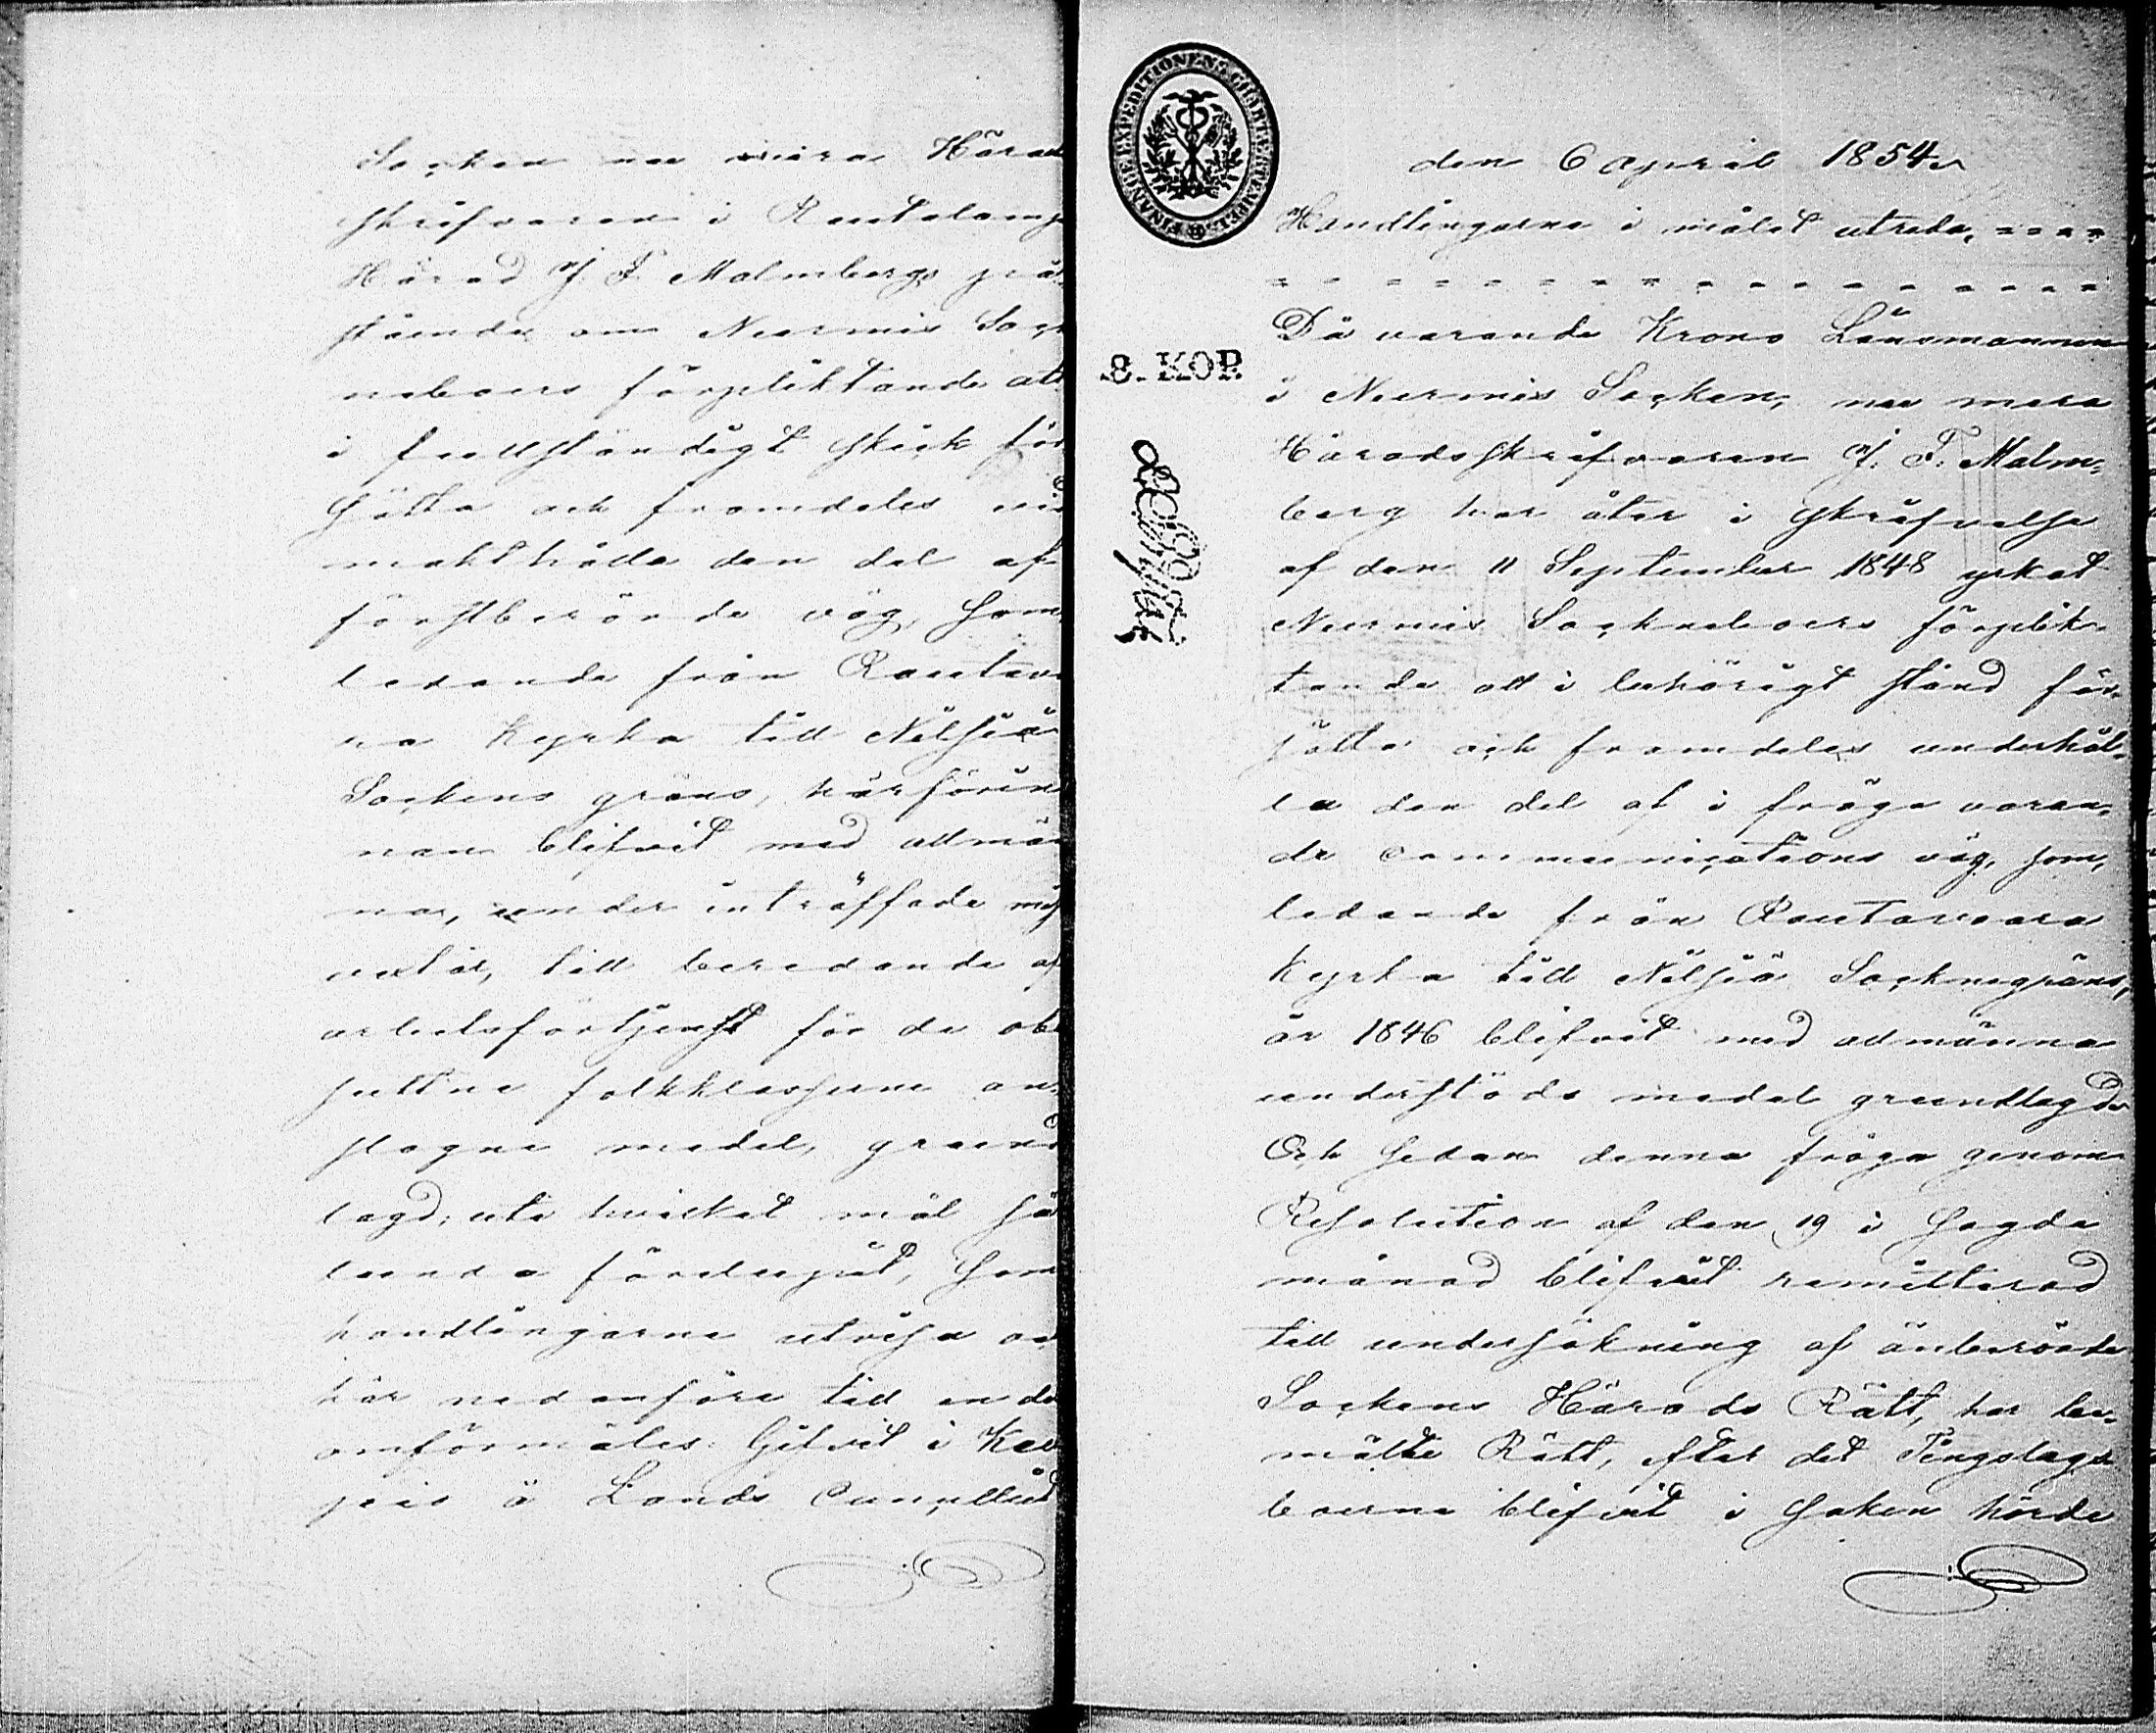 Socken nu mera Härad
skrifvaren i Rautalamp
Härad J. F. Malmbergs på
stående om Nurmis Sock
neboers förpliktande att
i fullständigt skick för
sätta och framdeles vid
makthålla den del af
förstberörde väg, som
ledande från Rautava
ra Kyrka till Nilsiä
Sockens gräns, härförin
nan blifvit med allmän
na, under inträffade miss
vextår, till beredande af
arbetsförtjenst för de obe
suttne folkklasserne an
slagne medel, grund
lagd; uti hvilket mål så
lunda förelupit, som
handlingarne utvisa och
här nedanföre till en del
omförmäles. Gifvit i Kuo
pio å Lands Cancelliet
den 6 April 1854.
FINANCE EXPEDITIONENS CHARTÆSTEMPEL
Handlingarne i målet utreda, = = = =
= = = = = = = = = = = = = = = =
Då varande Krono Länsmannen
8. KOP.
i Nurmis Socken, nu mera
Häradsskrifvaren J. F. Malm-
berg har åter i skrifvelse
af den 11 September 1848 yrkat
Nurmis Sockneboers förplik-
tande att i behörigt stånd för-
sätta och framdeles underhål-
la den del af i fråga varan-
de communications väg, som,
ledande från Rautavaara
Kyrka till Nilsiä Socknegräns,
år 1846 blifvit med allmänna
understöds medel grundlagd.
Och sedan denna fråga genom
Resolution af den 19 i sagde
månad blifvit remitterad
till undersökning af änberörde
Sockens Härads Rätt, har be-
mälte Rätt, efter det Tingslags
boerne blifvit i saken hörde